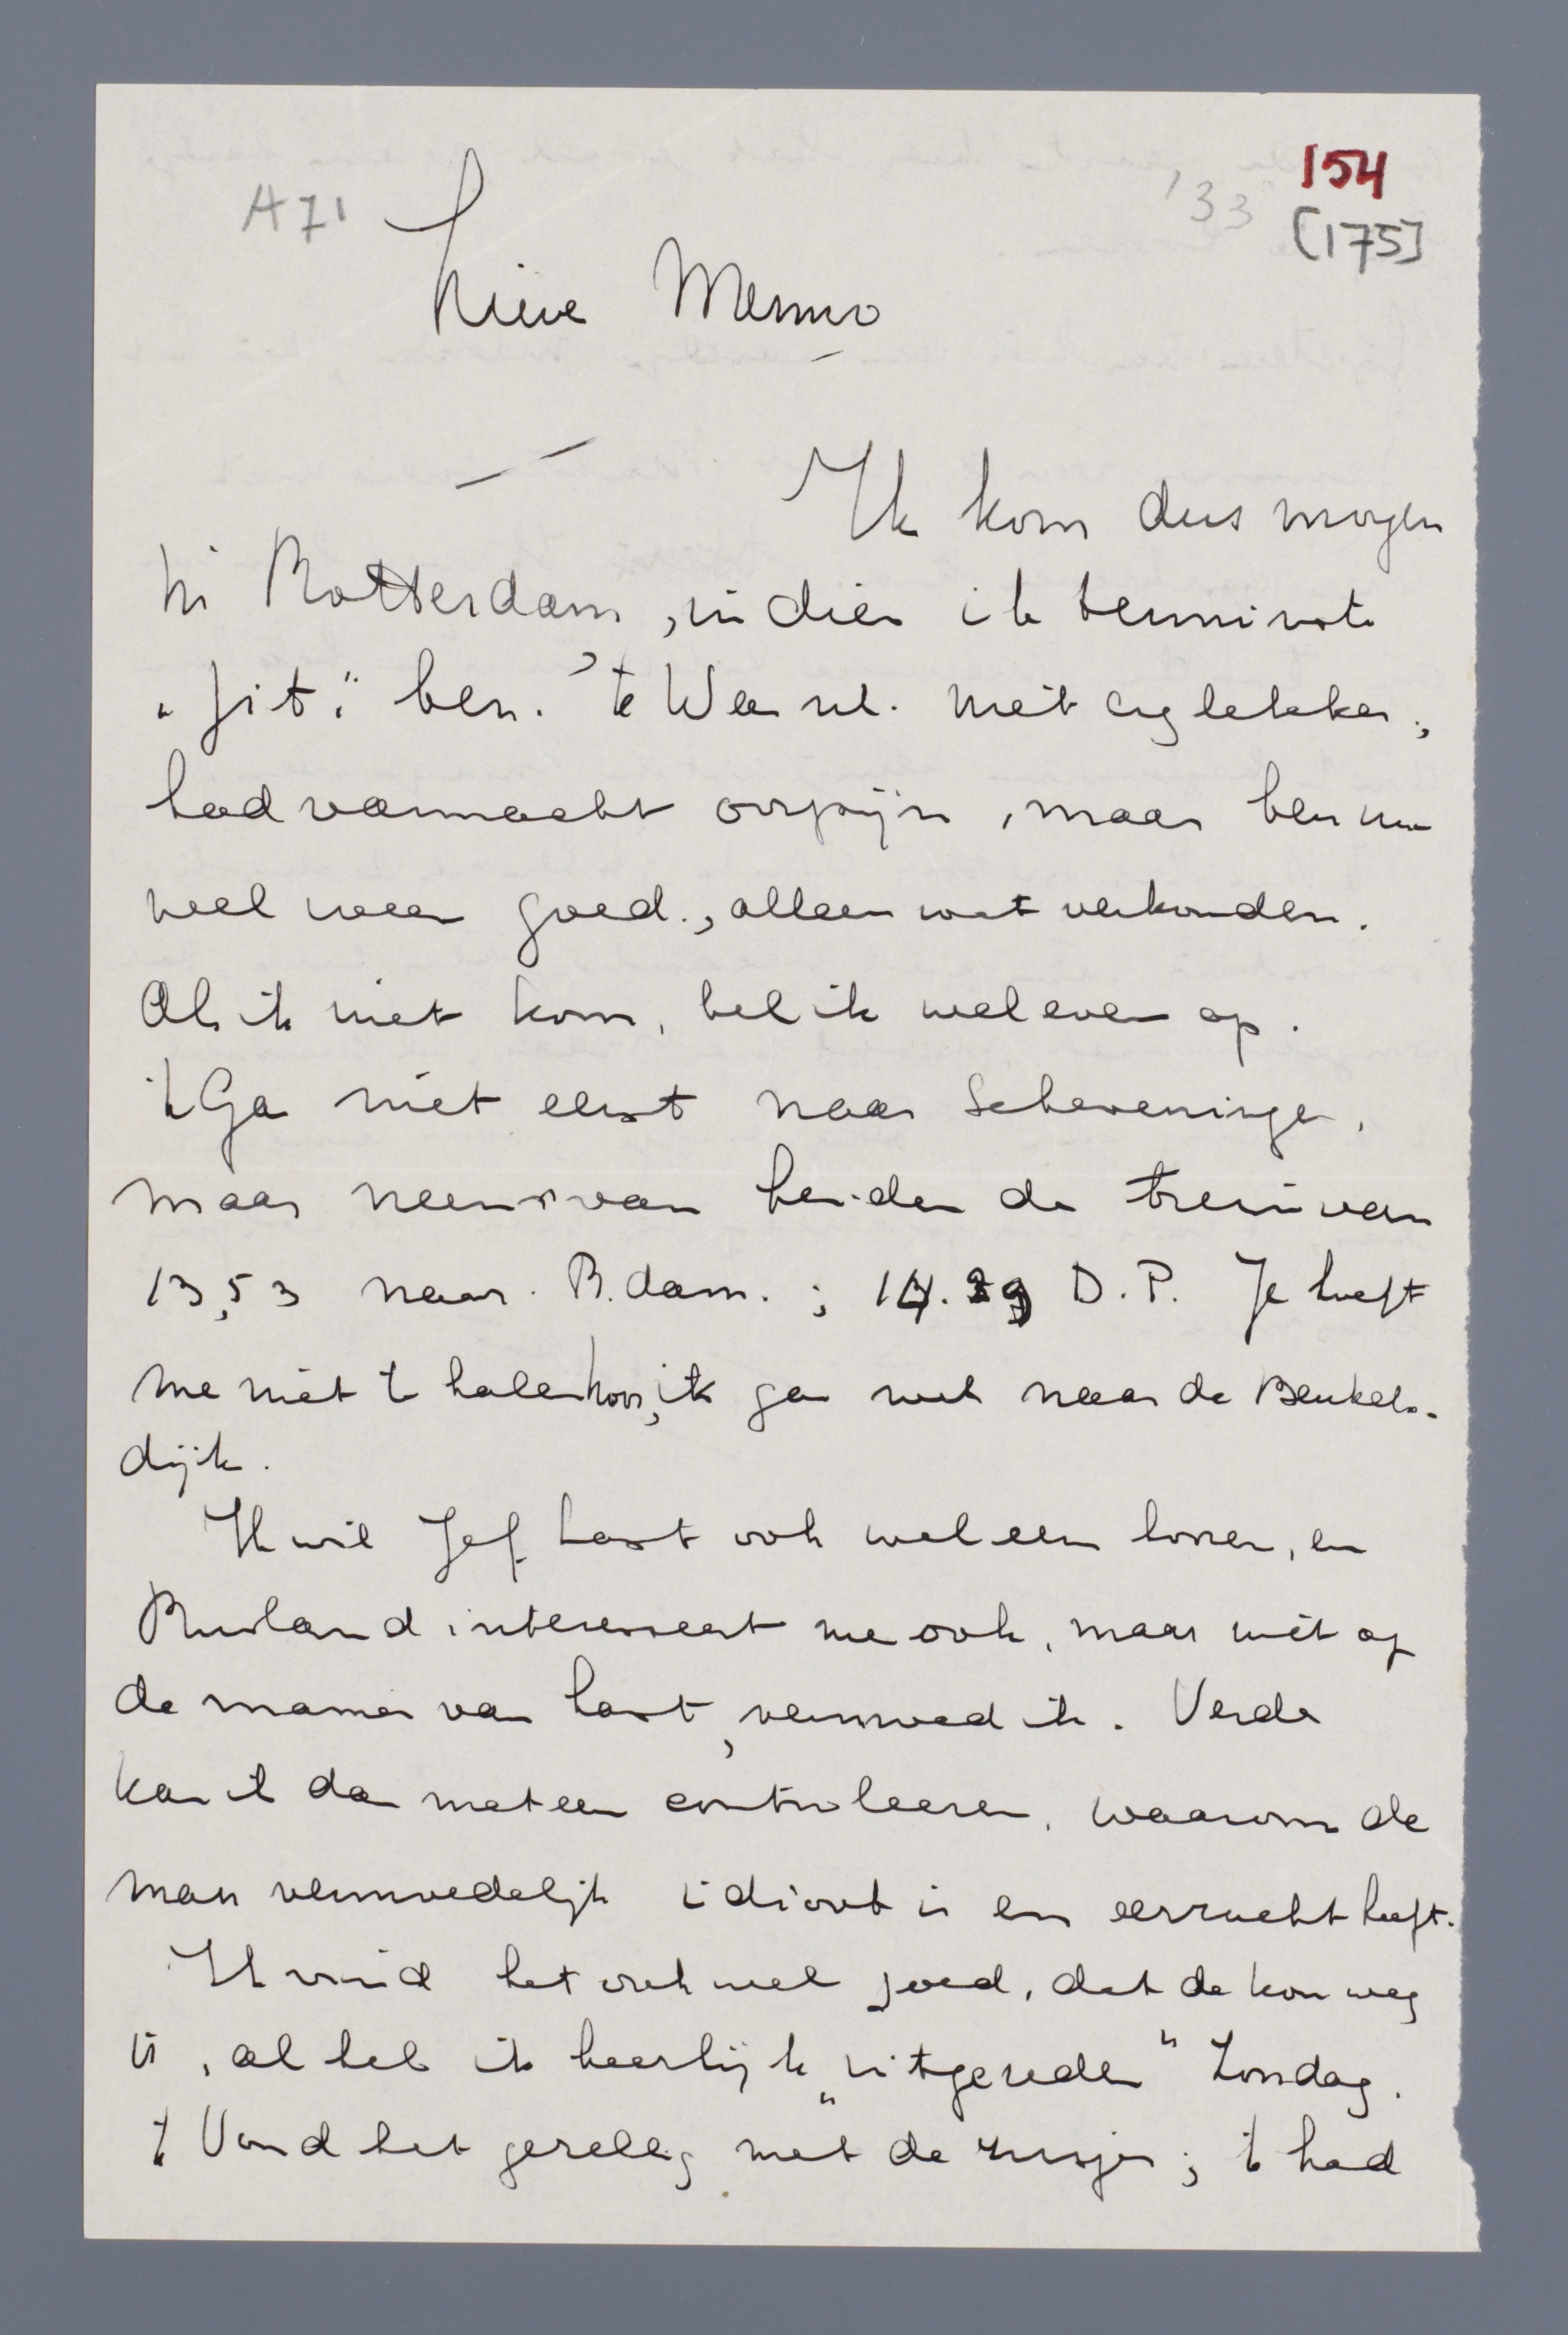 A71
'33
154
[175]
Lieve Menno
Ik kom dus morgen
in Rotterdam, indien ik tenminste
„fit" ben. 'k Was nl. niet erg lekker;
had vannacht oorpijn, maar ben nu
weer goed, alleen wat verkouden.
Als ik niet kom, bel ik wel even op.
'k Ga niet eerst naar Scheveningen,
maar neem van Leiden de trein van
13,53 naar R.dam.; 14.29 D.P. Je hoeft
me niet te halen hoor, ik ga wel naar de Beukels-
dijk.
Ik wil Jef Last ook wel een hooren, en
Rusland interesseert me ook, maar niet op
de manier van Last, vermoed ik. Verder
kan ik dan meteen controleeren, waarom de
man vermoedelijk idioot is en eerzucht heeft.
Ik vind het ook wel goed, dat de kou weg
is, al heb ik heerlijk „uitgereden" Zondag.
'k Vond het gezellig met de zusjes; 'k had